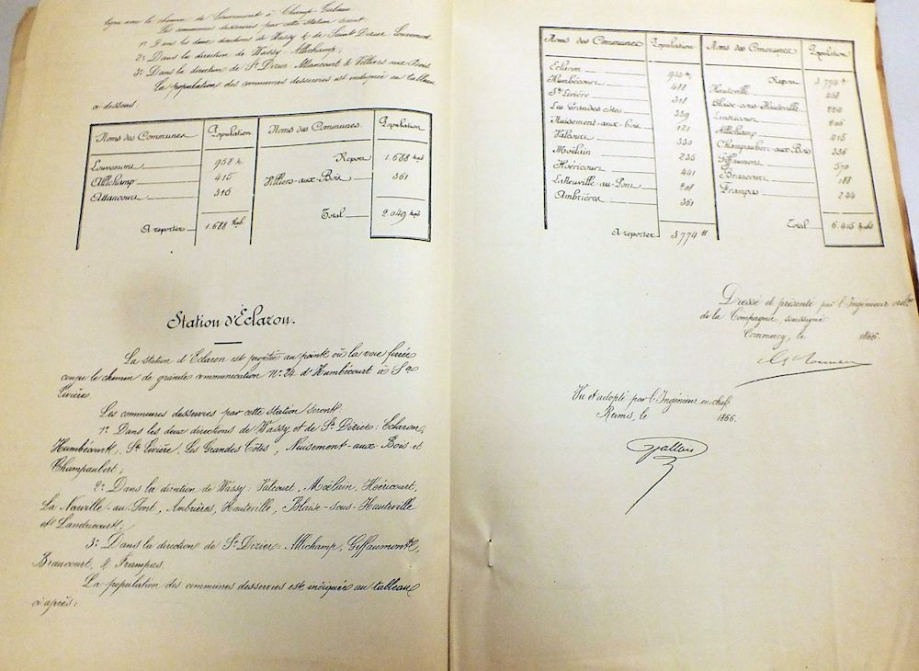 ligne avec le chemin de Louvemont à Champ-Gerbeau
Les communes desservies par cette station seront:
1º Dans les deux directions de Wassy & de Saint-Dizier: Louvemont
2º Dans la direction de Wassy: Allichamp,
3º Dans la direction de St Dizier, Attancourt & Villiers aux Bois.
La population des communes desservies est indiquée au tableau
ci dessous
Noms des Communes Population Noms des Communes. Population
Louvemont 958 h. Report 1.688 hab
Allichamp 415 Villiers-aux-Bois 361
Attancourt 315
Total 2.049 hab
A reporter 1.688 hab.
Station d'Eclaron.
La station d'Eclaron est projetée au point où la voie ferrée
coupe le chemin de grande communication Nº 24 d'Humbécourt à Ste
Livière.
Les communes desservies par cette station seront:
1º Dans les deux directions de Wassy et de St Dizier: Eclaron,
Humbécourt, Ste Livière, Les Grandes Côtes, Nuisement-aux-Bois et
Champaubert;
2º Dans la direction de Wassy: Valcourt, Moëlain, Hoéricourt,
La Neuville-au-Pont, Ambrières, Hauteville, Blaise-sous-Hauteville
et Landricourt;
3º Dans la direction de St Dizier: Allichamp, Giffaumont,
Braucourt, & Frampas.
La population des communes desservies est indiquée au tableau
ci après:
Noms des Communes Population Noms des Communes Population
Eclaron Report 3.774 h
Humbécourt 418 Hauteville
Ste Livière 318 Blaise-sous-Hauteville
Les Grandes côtes 339 Landricourt
Nuisement-aux-Bois 121 Allichamp 415
Valcourt 330 Champaubert-aux-Bois 336
Moëlain 235 Giffaumont
Hoéricourt 441 Braucourt
Laneuville-au-Pont Frampas 244
Ambrières 361
Total 6.415 hab
A reporter 3.774 h
Dressé et présenté par l'Ingénieur
de la Compagnie, soussigné
Commercy, le 1866.
Vu & adopté par l'Ingénieur en chef
Reims, le 1866.